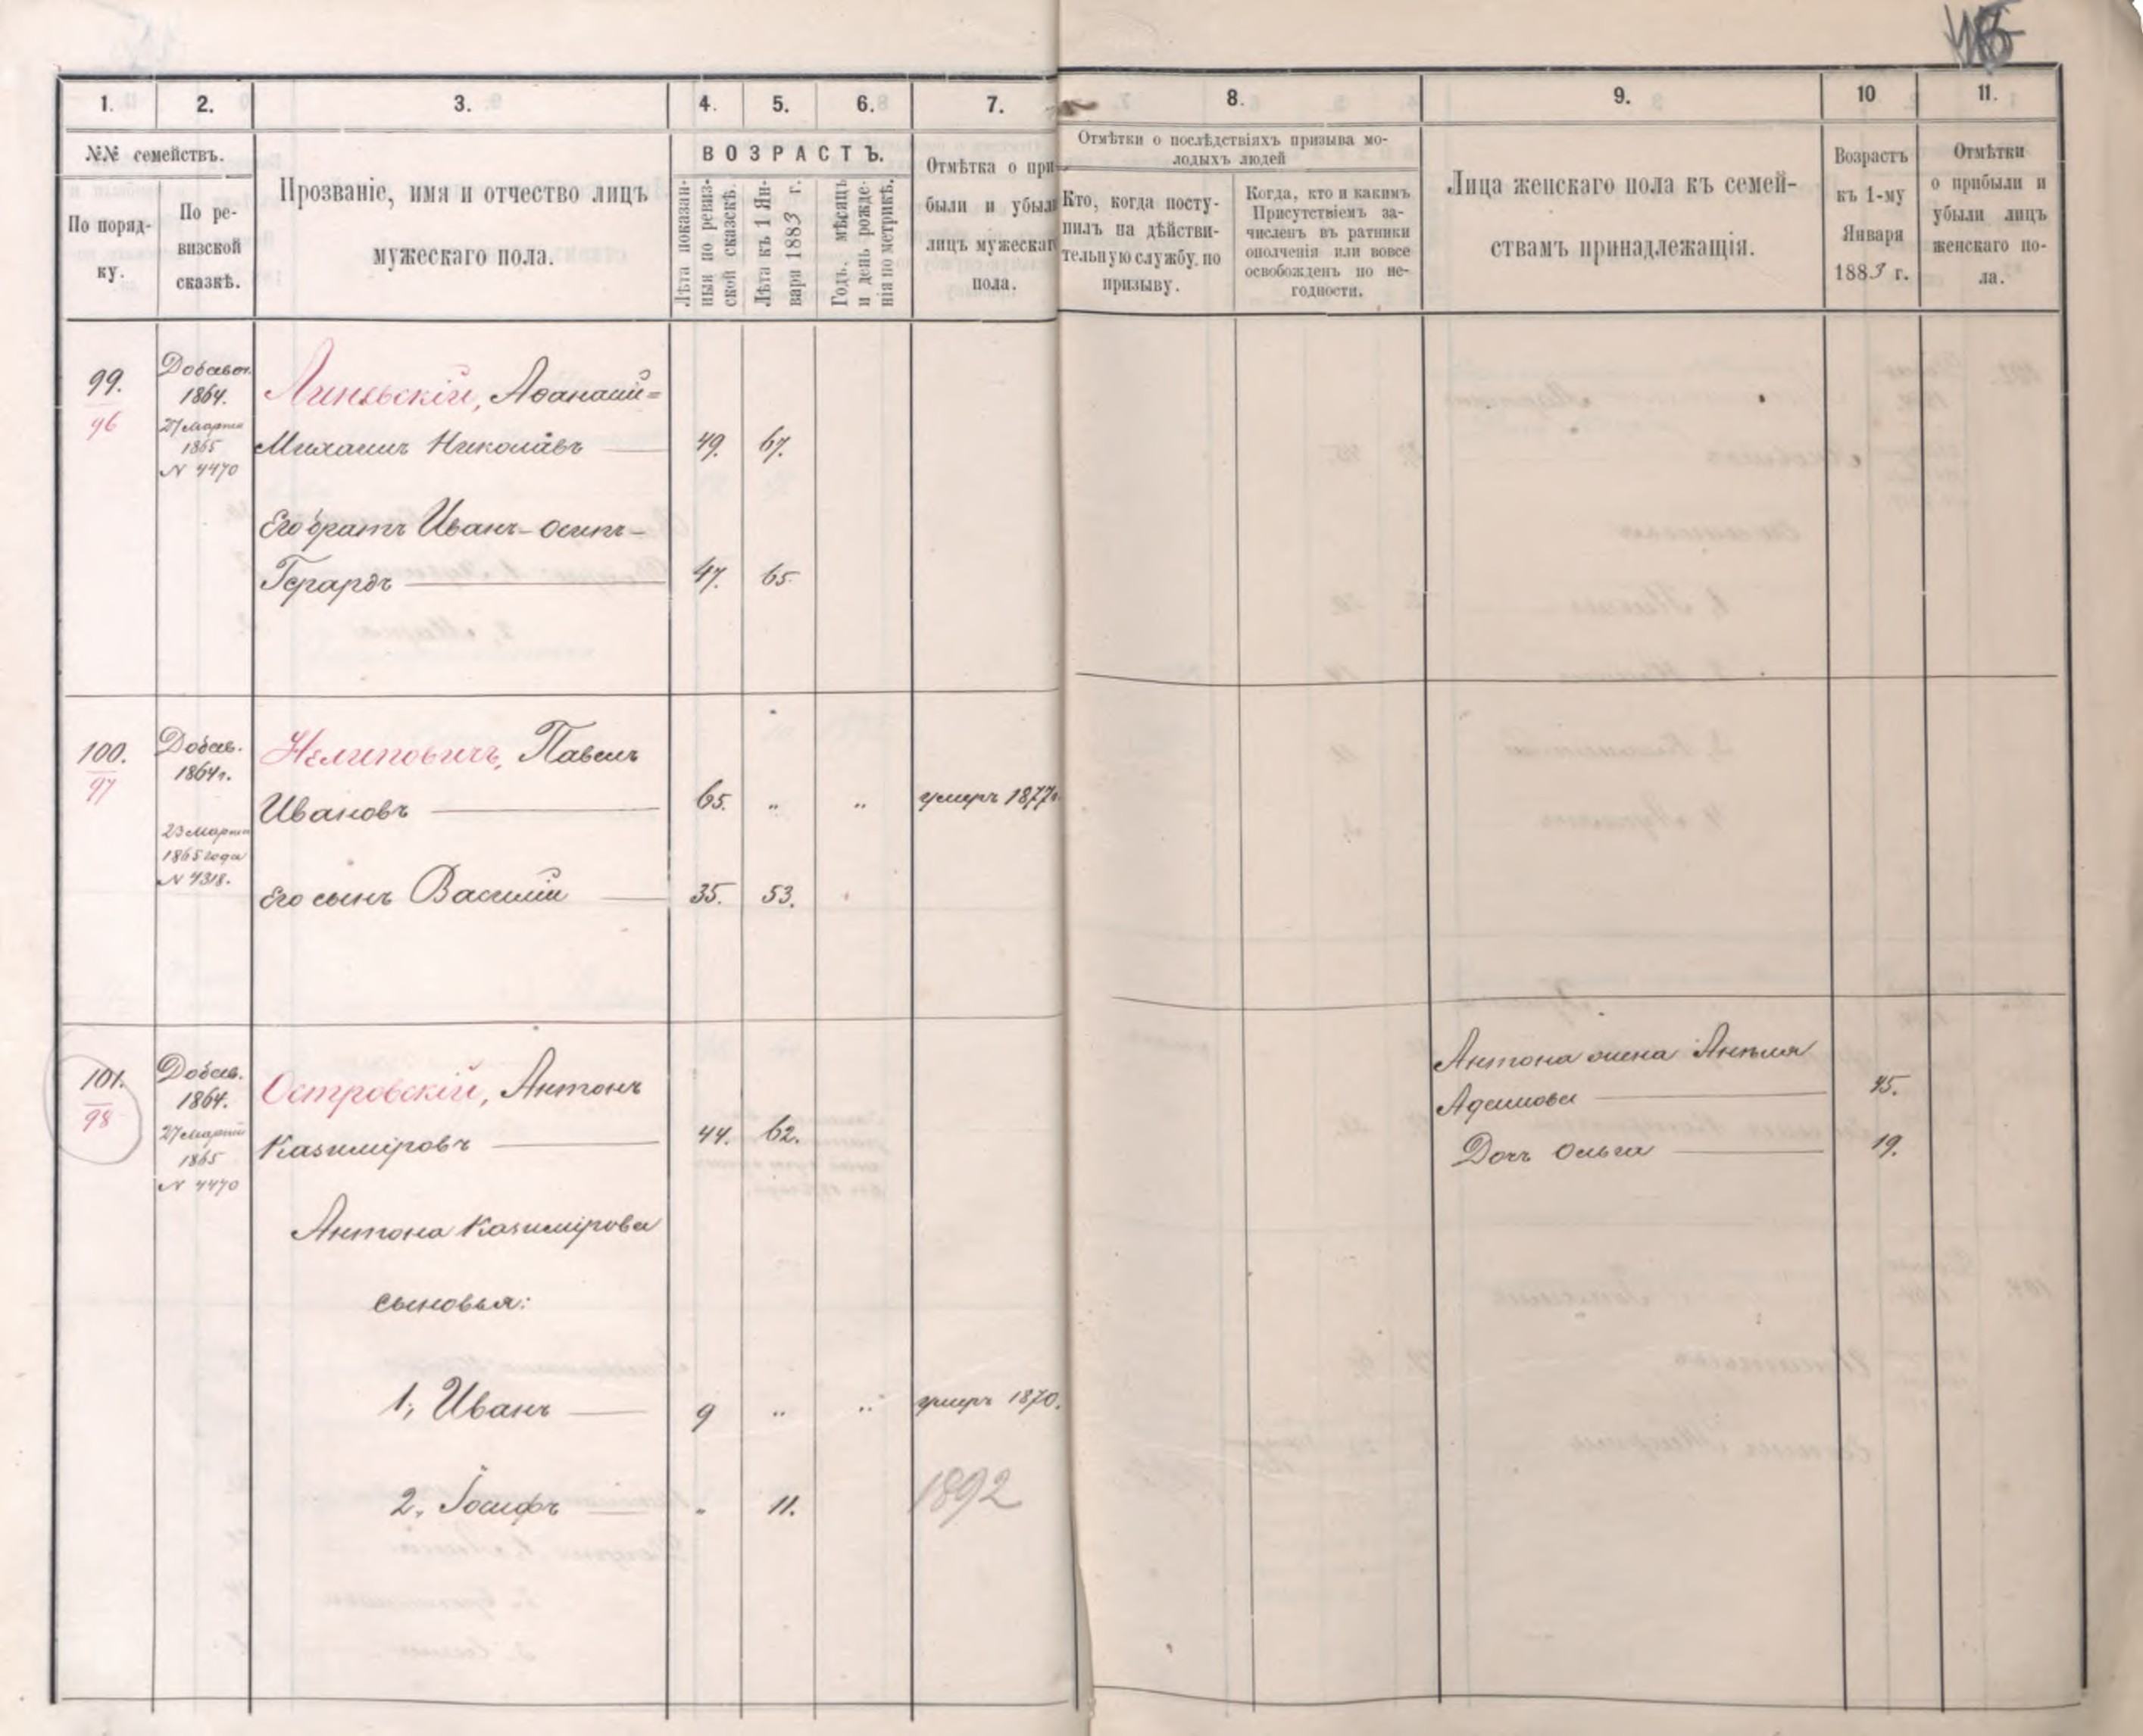 1.
2.
3.
4.
5.
6.
7.
8.
9.
10
11.
№№ семействъ.
По поряд-
ку.
По ре-
визской
сказкѣ.
Прозваніе, имя и отчество лицъ
мужескаго пола.
ВОЗРАСТЪ.
Лѣта показан-
ныя по ревиз-
ской сказкѣ.
Лѣта къ 1 Ян-
варя 1883 г.
Годъ, мѣсяцъ
и день рожде-
нія по метрикѣ.
Отмѣтка о при-
были и убыли
лицъ мужескаго
пола.
Отмѣтки о послѣдствіяхъ призыва мо-
лодыхъ людей
Кто, когда посту-
пилъ на дѣйстви-
тельную службу, по
призыву.
Когда, кто и какимъ
Присутствіемъ за-
численъ въ ратники
ополченія или вовсе
освобожденъ по не-
годности.
Лица женскаго пола къ семей-
ствамъ принадлежащія.
Возрастъ
къ 1-му
Января
1883 г.
Отмѣтки
о прибыли и
убыли лицъ
женскаго по-
ла.
99.
96
Добавоч.
1864.
27 Марта
1865
N 4470
Линевскій, Аѳанасій=
Михаилъ Николаевъ
49. 67.
Его братъ Иванъ-Осипъ-
Герардъ 47. 65.
100.
97
Добав.
1864 г.
23 Марта
1865 года
N 4318.
Нелиповичъ, Павелъ
Ивановъ 65. " " умеръ 1877 г.
Его сынъ Василій 35. 53.
101.
98
Добав.
1864.
27 Марта
1865
N 4470
Островскій, Антонъ
Казиміровъ 44. 62.
Антона Казимірова
сыновья:
1, Иванъ 9 " " умеръ 1870.
2, Іосифъ " 11. 1892
Антона жена Анѣля
Адамова 45.
Дочь Ольга 19.